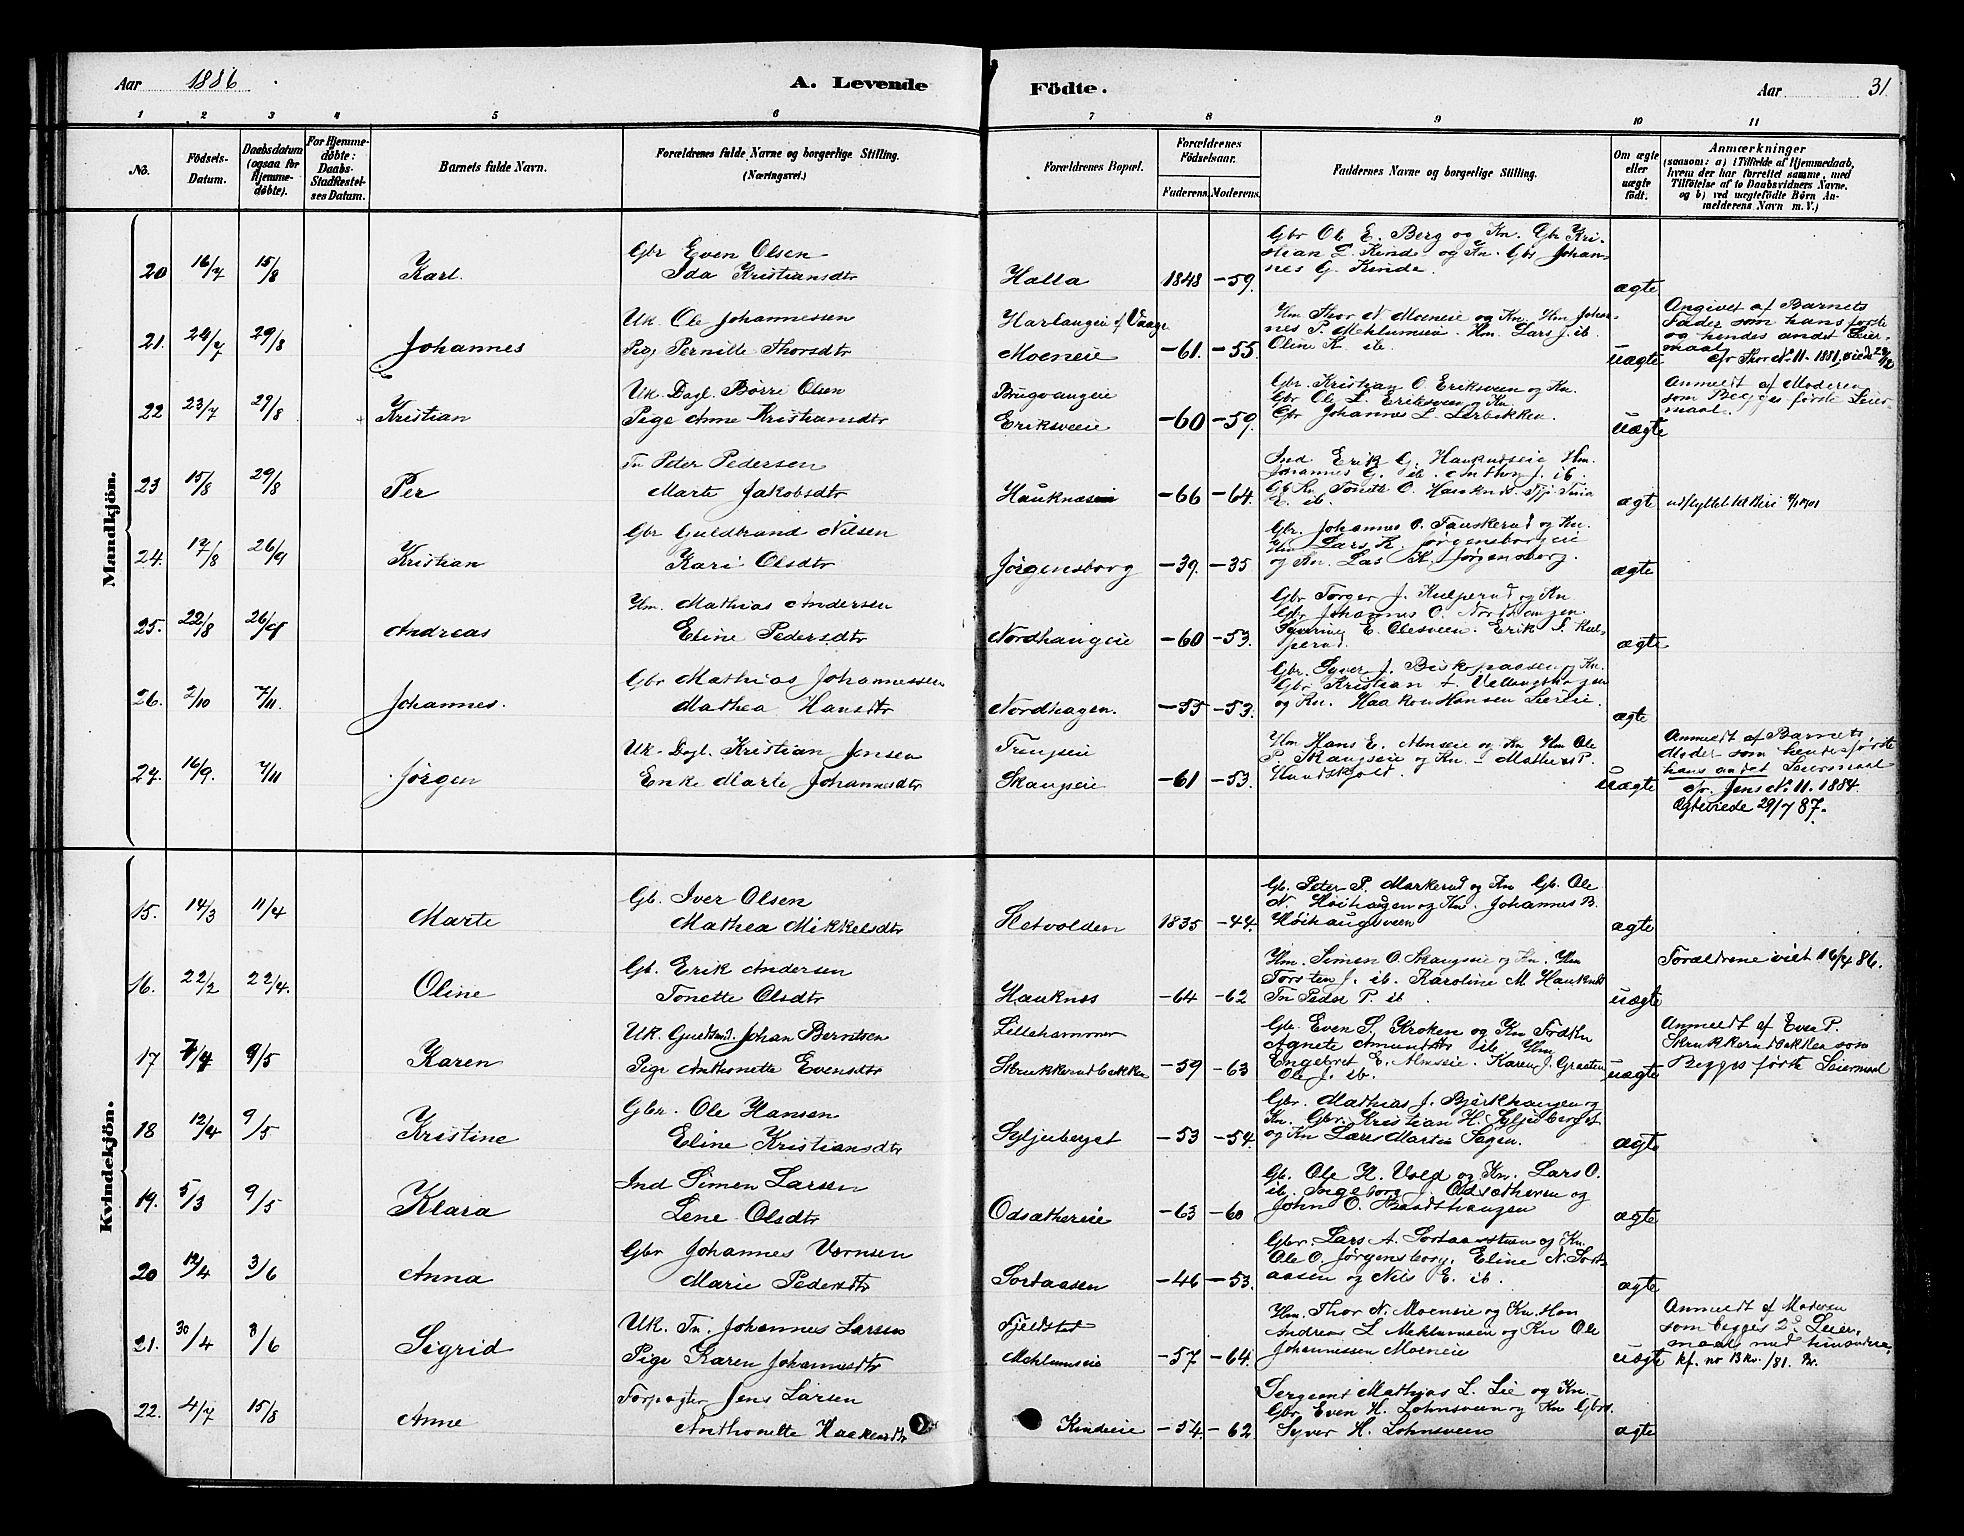 Aar 1886
A. Levende Födte.
Aar 31
1 2 3 4 5 6 7 8 9 10 11
No.
Födsels-Datum.
Daabsdatum (ogsaa for Hjemme-döbte).
For Hjemme-döbte: Daabs-Stadfæstel-ses Datum.
Barnets fulde Navn.
Forældrenes fulde Navne og borgerlige Stilling. (Næringsvei.)
Forældrenes Bopæl.
Forældrenes Födselsaar.
Faderens. Moderens.
Faddernes Navne og borgerlige Stilling.
Om ægte eller uægte födt.
Anmærkninger
(saasom: a) i Tilfælde af Hjemmedaab,
hvem der har forrettet samme, med
Tilföielse af to Daabsvidners Navne.
og b) ved uægtefödte Börn An-
melderens Navn m. V.)
Mandkjön.
20 16/7 15/8 Karl. Gbr Even Olsen
Ida Kristiansdtr Halla 1848 -59.
Gbr Ole E. Berg og Kn. Gbr Kri-
stian L. Kind og Kn. Gbr Johan-
nes G. Kinde.
ægte
21. 24/7 29/8 Johannes Uk. Ole Johannessen
Pige Pernille Thorsdtr
Moeneie -61. -55.
Hm Thor N. Moeneie og Kn. Hm Johan-
nes P. Mehlumseie. Hm. Lars J. ib.
Oline K. ib.
uægte
Angivet af Barnets
Fader som hans förste
og hendes andet Leier-
maal
cfr Thor No 11. 1881.
22 23/7 29/8 Kristian Uk. Dagl. Börre Olsen
Pige Anne Kristiansdtr
Brugvangeie
Eriksveeie -60 -59.
Gbr. Kristian O. Eriksveen og Kn.
Gbr Ole L. Eriksveen og Kn.
Gbr Johannes L. Lerbækken.
uægte
Anmeldt af Moderen
som Begges förste Leier-
maal.
23 15/8 29/8 Per Tn Peter Pedersen
Marte Jakobsdtr
-66 -64.
Ind. Erik G. Hauknæseie Hm.
Johannes G. ib. Anthon J. ib
E. ib.
ægt
udflyttet til Biri
24. 17/8 26/9 Kristian Gbr Guldbrand Nilsen
Kari Olsdtr
Jörgensborg -39. -35
Gbr. Johannes O. Tauskerud og Kn.
Hm Lars K. Jörgensborgeie
og Kn. Lars K. Jörgensborg.
ægte
25. 22/8 26/9 Andreas Hm. Mathias Andersen
Eline Pedersdtr
Nordhaugeie -60 -53.
Gbr Torger J. Kulperud og Kn
Gbr Johannes O. Nordhaugen.
Syverine E. Olesveen. Erik S. Kul-
perud.
ægte
26. 2/10 7/11. Johannes. Gbr Mathias Johannessen
Mathea Hansdtr
Nordhagen. -55 -53.
Gbr. Syver J. Biskopaasen og Kn.
og Kn. Haakon Hansen Lieeie.
ægte
27. 16/9. 7/11 Jörgen Uk. Dagl. Kristian Jensen
Enke Marte Johannesdtr
Skaugseie -61 -53.
Hm Hans E. Almseie og Kn Hm Ole
P. Skaugseie og Kn. - Mathea P.
Hundskjold.
uægte
Anmeldt af Barnets
Moder som hendes förste
hans andet Leiermaal
cfr. Jens No 11. 1884.
Ægteviede 29/7 87.
Kvindekjön.
15. 14/3 11/4 Marte Gb. Iver Olsen
Mathea Mikkelsdtr
Hetvolden 1835 -44.
Gb. Peter P. Markerud og Kn Gb. Ole
N. Höihaugen og Kn. Johannes B.
Höihaugsveen
ægte
16. 22/2 22/4. Oline Gb. Erik Andersen
Tonette Olsdtr
Hauknæs -64 -62
Hm. Simen O. Skaugseie og Kn. Hm
Torsten J. ib. Karoline M. Hauknæs
Tn Peder P. ib
uægte
Forældrene viet 16/4 86.
17 7/4 9/5 Karen Uk. Guldsmd. Johan Berntsen
Pige Anthonette Evensdtr
Lillehammer
Skrukkerudbækken -59 -63
Gbr. Even S. Kroken og Kn
Agnete Amundsdtr ib. Hm
Engebret E. Almseie. Karen J. Graaten
Ole J. ib.
uægte
Anmeldt af Even P.
Skrukkerudbækken som
Begges förste Leiermaal
18 12/4 9/5 Kristine Gbr. Ole Hansen
Eline Kristiansdtr
Syljuberget -53 -54.
Gbr. Mathias J. Bjørkhaugen og
Kn. Gbr. Kristian H. Syljuberget
og Kn Lars Martin Sagen.
ægte
19. 5/3 9/5 Klara Ind Simen Larsen
Lene Olsdtr
Odsæthereie -63 -60
Gb. Ole H. Vold og Kn. Lars O.
ib. Ingeborg J. Odsætheren og
John O. Baadshaugen
ægte
20 12/4 3/6 Anna Gbr Johannes Vernsen
Marie Pedersdtr
Sortaasen -46 -53.
Gbr. Lars A. Sortaasstuen og Kn.
Ole O. Jörgensborg, Eline N. Sort-
aasen og Nils E. ib.
ægte
21. 30/4 8/6 Sigrid Uk. Tn. Johannes Larsen
Pige Karen Johannesdtr
Fjeldstad
Mehlumseie -57 -64.
Hm. Thor N. Moeneie og Kn. Hm
Andreas L. Mehlumseie og Kn Ole
Johannessen Moeneie
uægte
Anmeldt af Moderen
som begges 2d. Leier-
maal med hinandre,
kf. nr 13 Kv. /81.
22. 4/7 15/8 Anne Forpagter Jens Larsen
Anthonette Haakensdtr
Kindseie -54. -62.
Sergeant Mathias L. Lie og Kn.
Gbr Even H. Lohnsveen og Kn Gbr.
Syver H. Lohnsveen
ægte